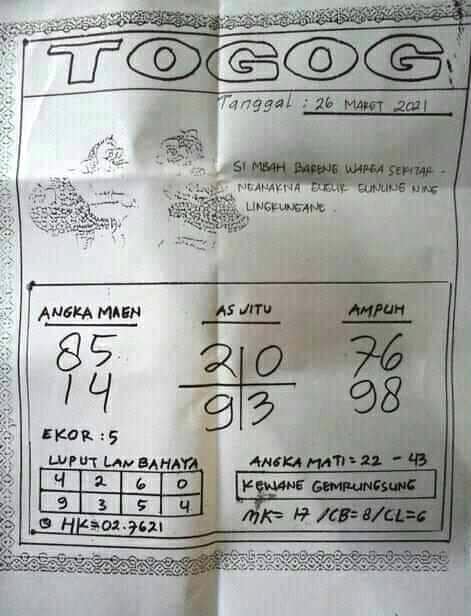 TOGOG
Tanggal : 26 MARET 2021
SI MBAH BARENG WARGA SEKITAR -
NGANAKNA GUGUR GUNUNG NING
LINGKUNGANE.
ANGKA MAEN AS JITU AMPUH
85 2 0 76
14 9 3 98
EKOR : 5
LUPUT LAN BAHAYA
4 2 6 0
9 3 5 4
HK=02.7621
ANGKA MATI = 22 - 43
KEWANE GEMRUNGSUNG
MK= 17 /CB= 8/CL=6